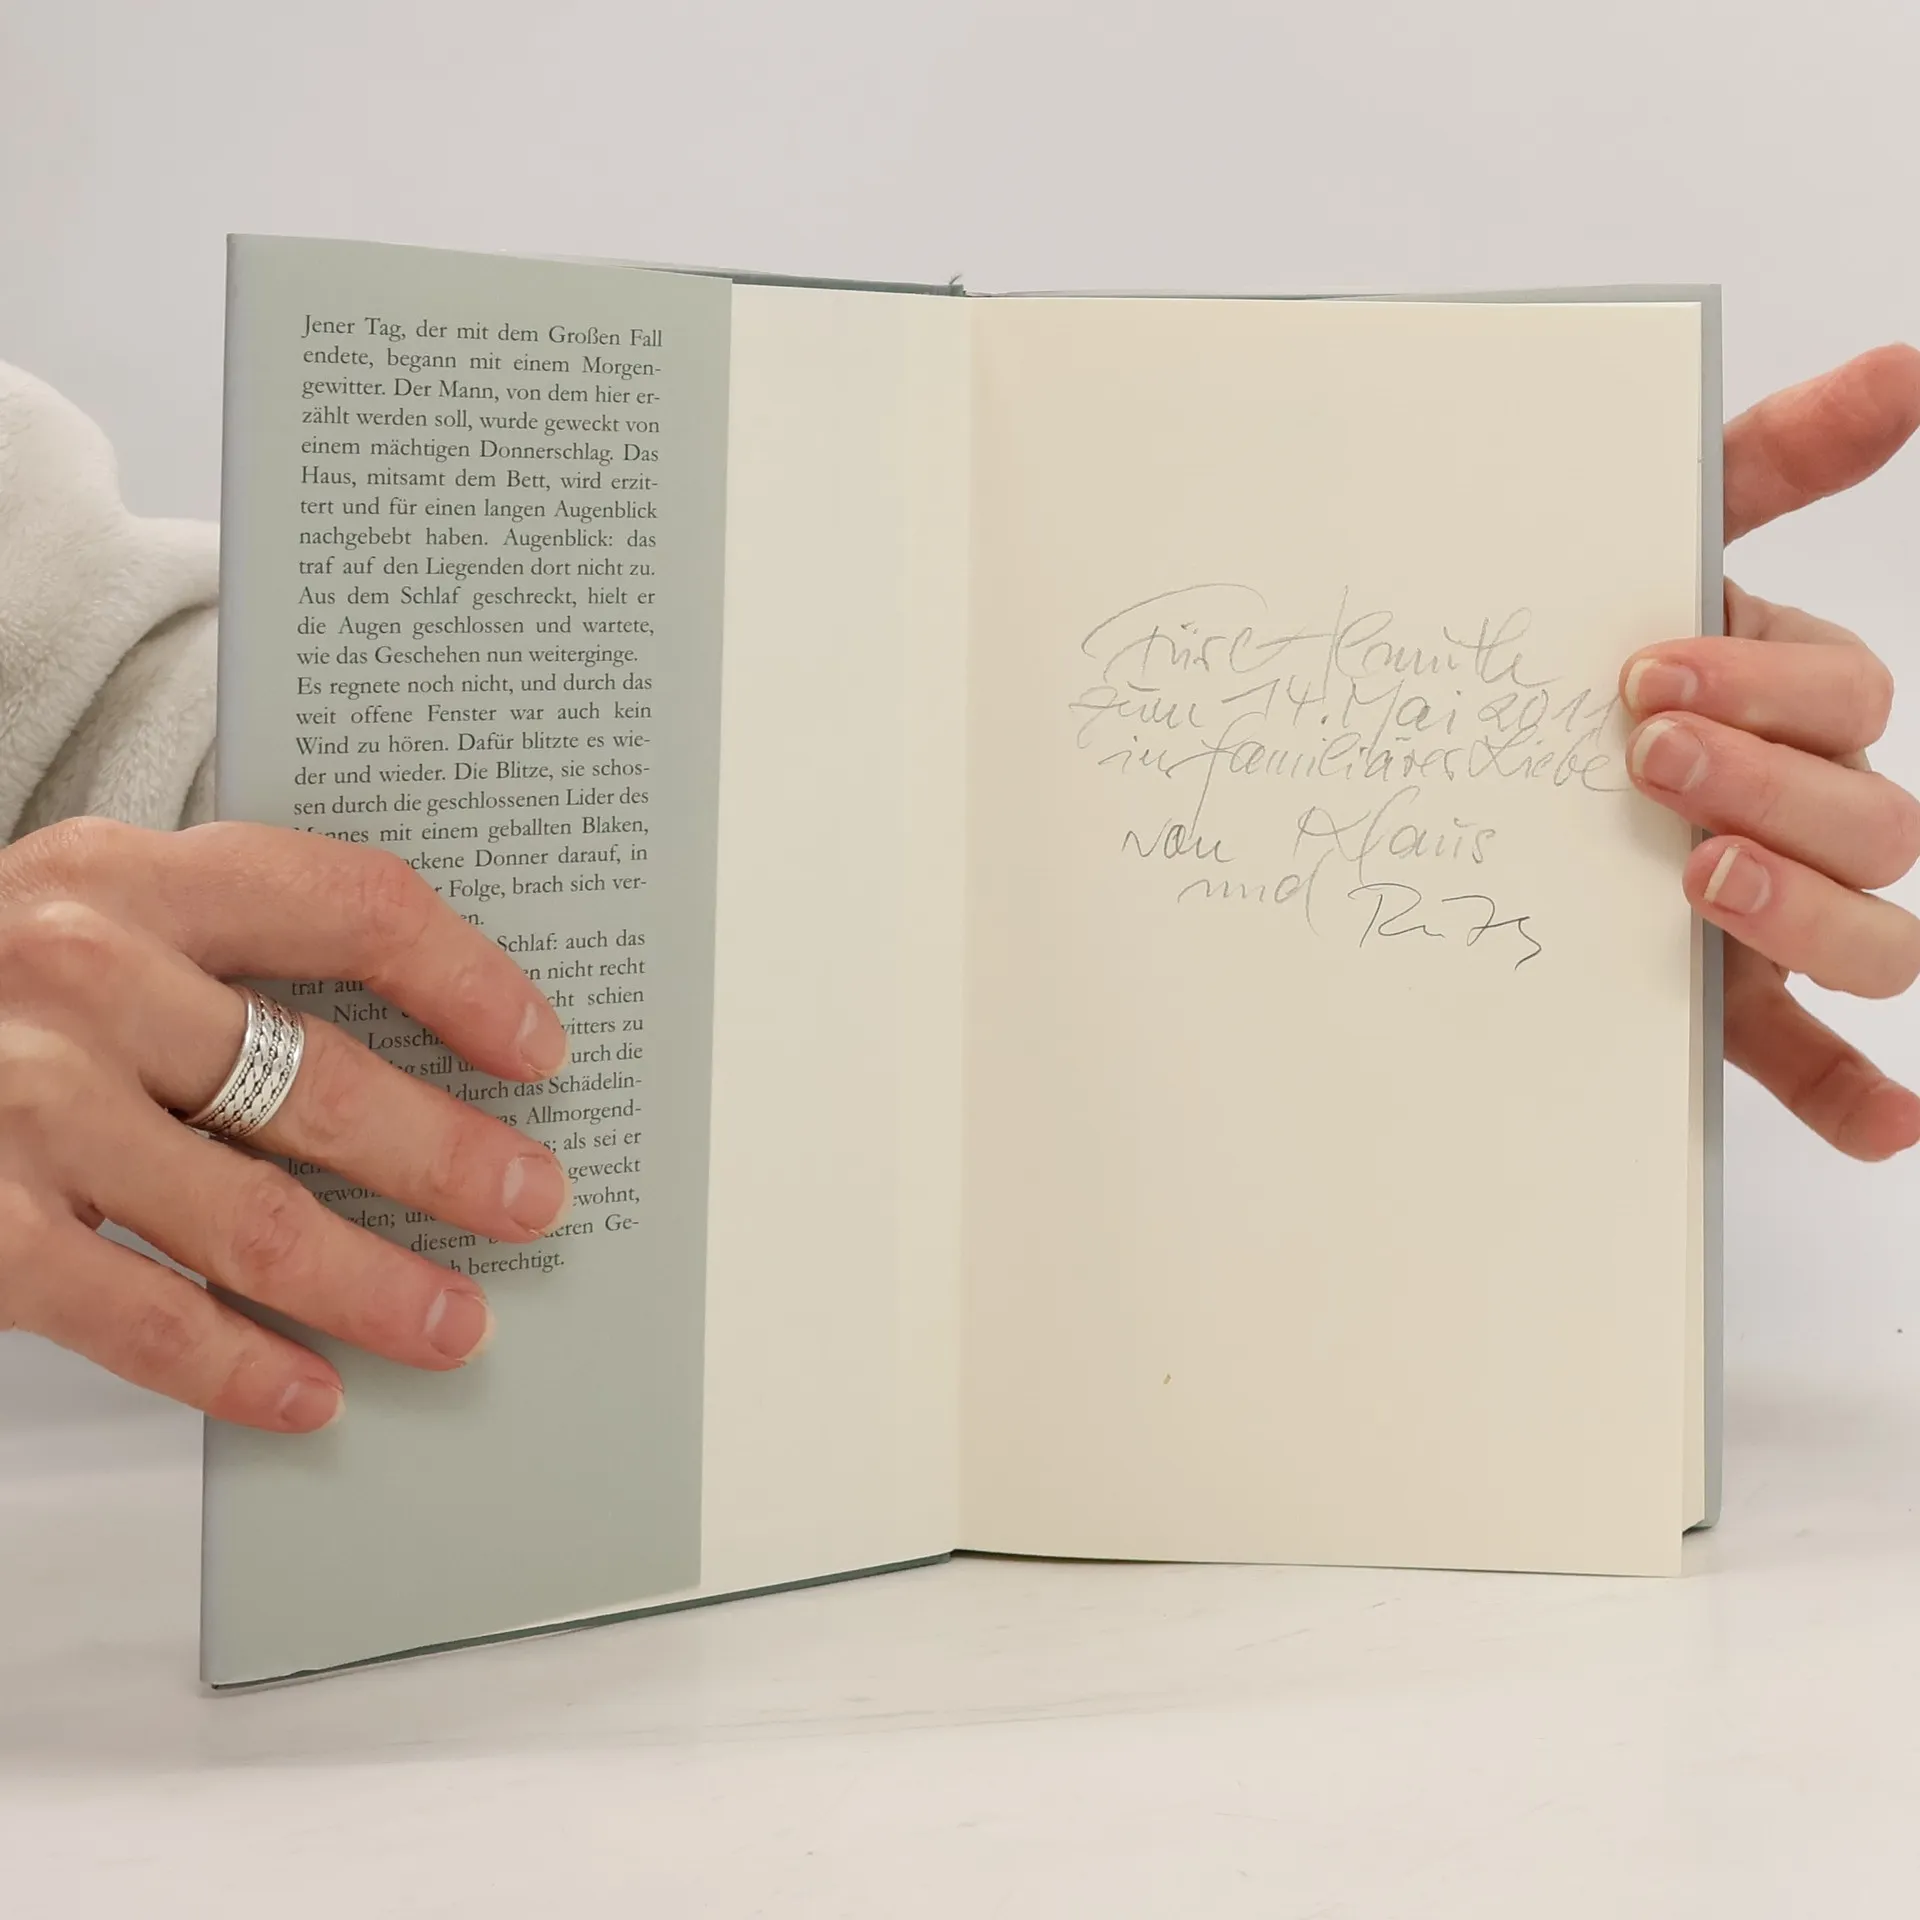 Jener Tag, der mit dem Großen Fall
endete, begann mit einem Morgen-
gewitter. Der Mann, von dem hier er-
zählt werden soll, wurde geweckt von
einem mächtigen Donnerschlag. Das
Haus, mitsamt dem Bett, wird erzit-
tert und für einen langen Augenblick
nachgebebt haben. Augenblick: das
traf auf den Liegenden dort nicht zu.
Aus dem Schlaf geschreckt, hielt er
die Augen geschlossen und wartete,
wie das Geschehen nun weiterginge.
Es regnete noch nicht, und durch das
weit offene Fenster war auch kein
Wind zu hören. Dafür blitzte es wie-
der und wieder. Die Blitze, sie schos-
sen durch die geschlossenen Lider des
mit einem geballten Blaken,
Donner darauf, in
Folge, brach sich ver-
Schlaf: auch das
nicht recht
traf auf
schien
Nicht
zu
urch die
still
durch das Schädelin-
Allmorgend-
als sei er
geweckt
diesem Ge-
berechtigt.
zum 14. Mai 2011
in familiärer Liebe
von Klaus
und